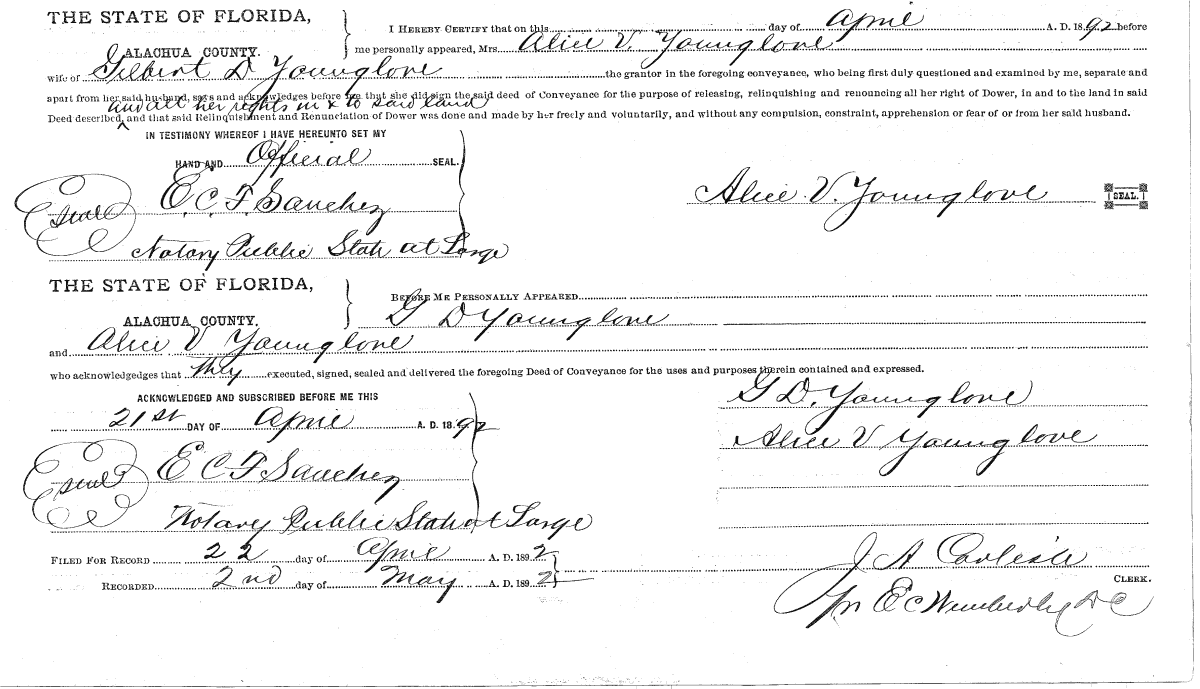 THE STATE OF FLORIDA,
ALACHUA COUNTY.
I HEREBY CERTIFY that on this day of April A. D. 1892 before
me personally appeared, Mrs. Alice V. Younglove
wife of Gilbert D Younglove the grantor in the foregoing conveyance, who being first duly questioned and examined by me, separate and
apart from her said husband, says and acknowledges before me that she did sign the said deed of Conveyance for the purpose of releasing, relinquishing and renouncing all her right of Dower, in and to the land in said
and all her rights in & to said land
Deed described, and that said Relinquishment and Renunciation of Dower was done and made by her freely and voluntarily, and without any compulsion, constraint, apprehension or fear of or from her said husband.
IN TESTIMONY WHEREOF I HAVE HEREUNTO SET MY
HAND AND Official SEAL.
seal E. C. F. Sanchez
Alice V. Younglove SEAL.
Notary Public State at Large
THE STATE OF FLORIDA,
ALACHUA COUNTY.
BEFORE ME PERSONALLY APPEARED
G D Younglove
and Alice V Younglove
who acknowledgedges that they executed, signed, sealed and delivered the foregoing Deed of Conveyance for the uses and purposes therein contained and expressed.
ACKNOWLEDGED AND SUBSCRIBED BEFORE ME THIS
21st DAY OF April A. D. 1892
G D. Younglove
Alice V Younglove
seal E C F Sanchez
Notary Public State at Large
FILED FOR RECORD 22 day of April A. D. 1892
RECORDED 2nd day of May A. D. 1892
J A Carlisle
CLERK.
Pr E C Wimberly D C